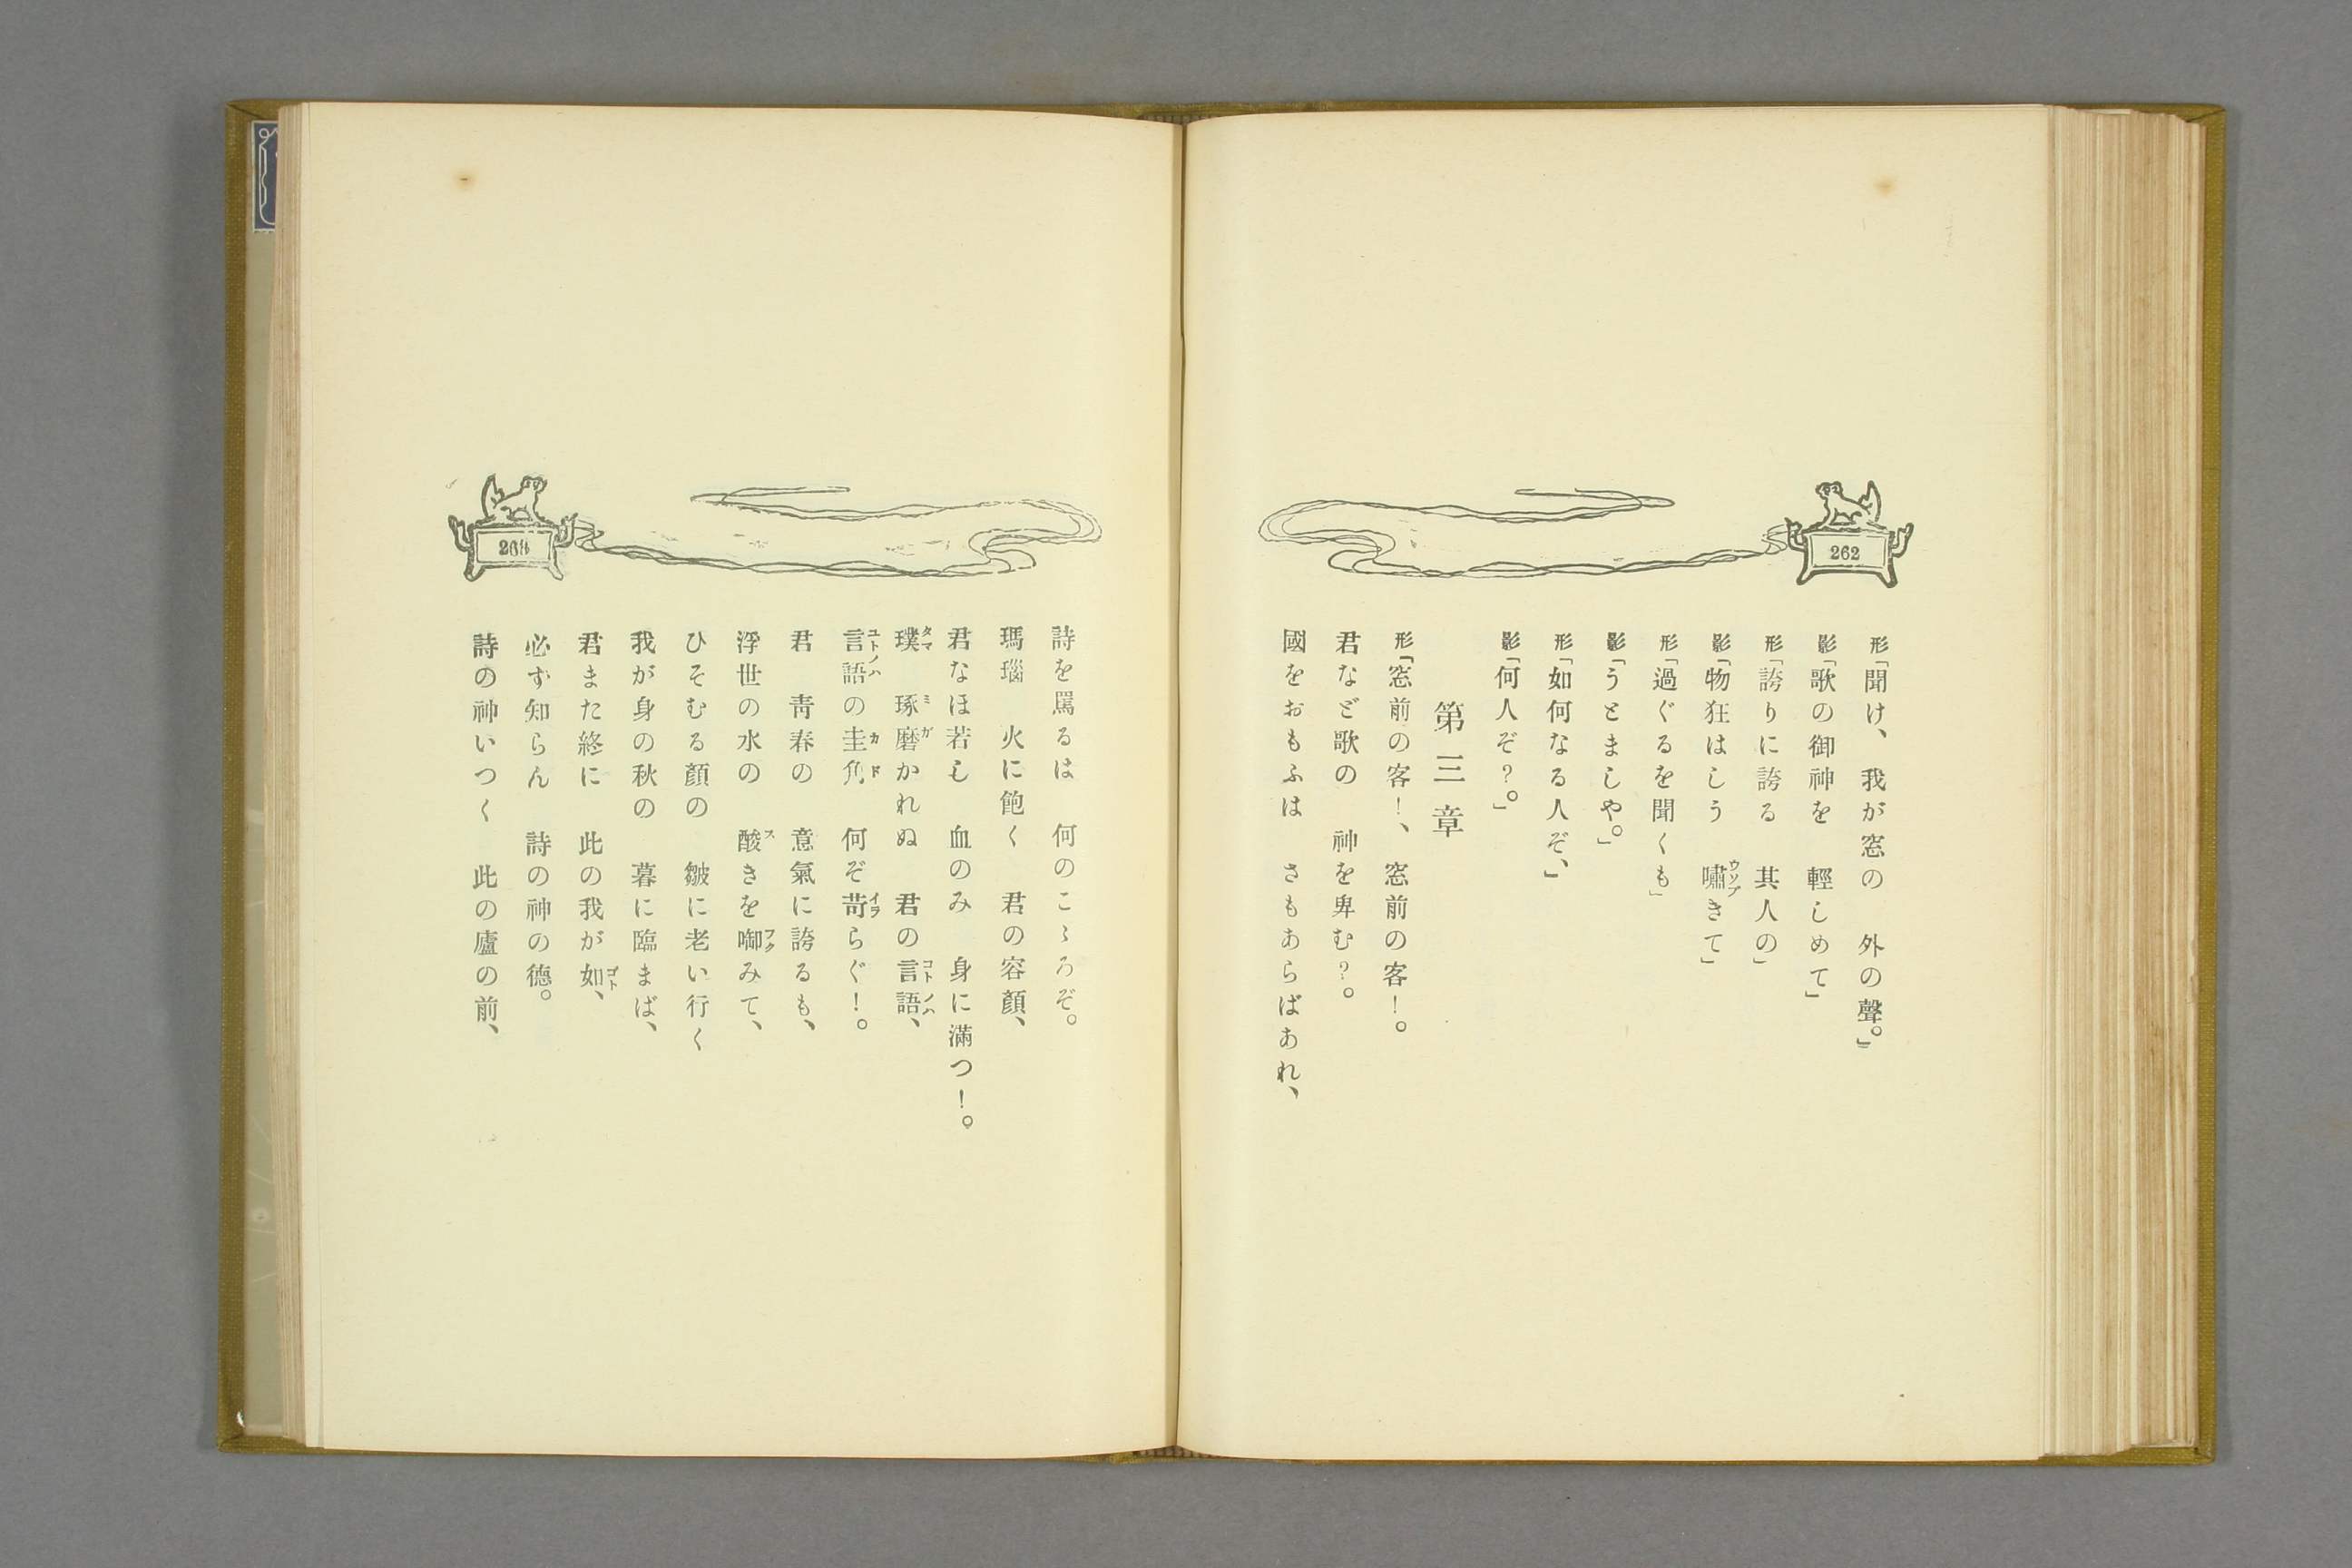 262
形「聞け、我が窓の　外の聲。」
影「歌の御神を　輕しめて」
形「誇りに誇る　其人の」
影「物狂はしう　嘯きて」
ウソブ
形「過ぐるを聞くも」
影「うとましや。」
形「如何なる人ぞ、」
影「何人ぞ?。」
第三章
形「窓前の客!、　窓前の客!。
君など歌の　神を卑む?。
國をおもふは　さもあらばあれ、
詩を罵るは　何のこゝろぞ。
瑪瑙　火に飽く　君の容顏、
君なほ若し　血のみ　身に滿つ!。
璞　琢磨かれぬ　君の言語、
タマ　ミガ　コトノハ
言語の圭角　何ぞ苛らぐ!。
コトノハ　カド　イラ
君　靑春の　意氣に誇るも、
浮世の水の　酸きを啣みて、
ス　フク
ひそむる顏の　皺に老い行く
我が身の秋の　暮に臨まば、
君また終に　此の我が如、
ゴト
必ず知らん　詩の神の德。
詩の神いつく　此の廬の前、